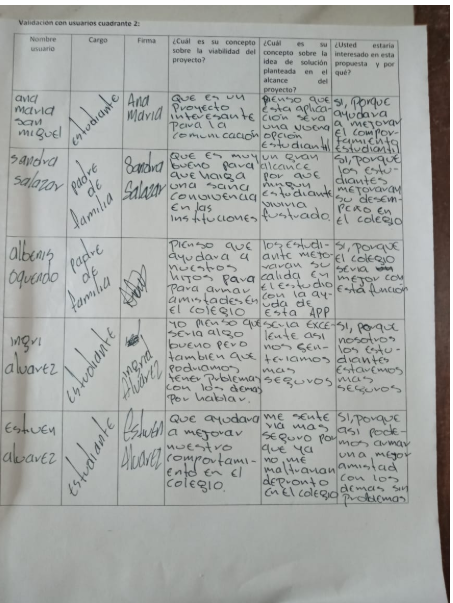 Validación con usuarios cuadrante 2:
Nombre
usuario
Cargo
Firma
¿Cuál es su concepto
sobre la viabilidad del
proyecto?
¿Cuál es su
concepto sobre la
idea de solución
planteada en el
alcance del
proyecto?
¿Usted estaría
interesado en esta
propuesta y por
qué?
ana
maria
san
miguel
estudiante
Ana
Maria
Que es un
Proyecto
interesante
Para la
comunicación
Pienso que
esta aplica-
ción seva
una buena
opción
Estudiantil
si, Porque
ayudara
a mejorar
el compor-
tamiento
estudiantil
Sandra
Salazar
Padre
de
familia
Sandra
Salazar
Que es muy
bueno para
que haiga
una sana
convivencia
En las
instituciones
un gran
alcance
por que
ningun
estudiante
viviria
fustrado.
si, porque
los estu-
diantes
mejoraram
su desem-
peño en
el colegio
albenis
oquendo
Padre
de
familia
Pienso que
ayudara a
nuestros
hijos para
Para armar
amistades en
el colegio
los estudi-
ante mejo-
raran su
calida en
el estudio
con la ay-
uda de
esta APP
si, Porque
el colegio
seria
mejor con
esta función
ingri
alvarez
estudiante
ingrid
Alvarez
yo pienso que
seria algo
bueno pero
tambien que
podriamos
tener problemas
con los demas
Por hablar.
seria exce-
lente asi
nos sen-
tiriamos
mas
seguros
si, porque
nosotros
los estu-
diantes
estaremos
mas
seguros
Estiven
alvarez
estudiante
Estiven
Alvarez
Que ayudara
a mejorar
nuestro
comportami-
ento en el
colegio.
me sente
ria mas
seguro por
que ya
no me
maltratarian
depronto
en el colegio
si, porque
asi pode-
mos armar
una mejor
amistad
con los
demas sin
problemas